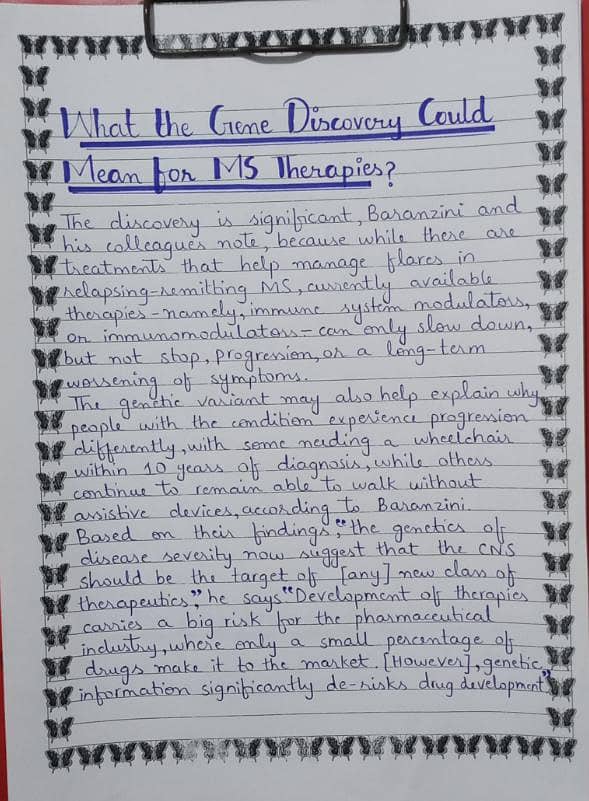 What the Gene Discovery Could
Mean for MS Therapies?
The discovery is significant, Baranzini and
his colleagues note, because while there are
treatments that help manage flares in
relapsing-remitting MS, currently available
therapies-namely, immune system modulators,
or immunomodulators-can only slow down,
but not stop, progression, or a long-term
worsening of symptoms.
The genetic variant may also help explain why
people with the condition experience progression
differently, with some needing a wheelchair
within 10 years of diagnosis, while others
continue to remain able to walk without
assistive devices, according to Baranzini.
Based on their findings, "the genetics of
disease severity now suggest that the CNS
should be the target of [any] new class of
therapeutics", he says "Development of therapies
carries a big risk for the pharmaceutical
industry, where only a small percentage of
drugs make it to the market. [However], genetic
information significantly de-risks drug development"